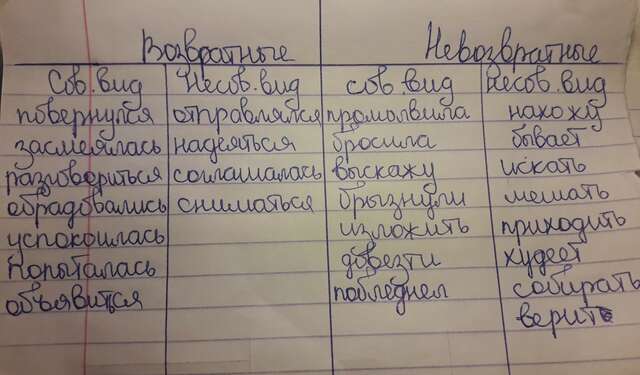 Возвратные Невозвратные
Сов. вид Несов. вид сов. вид Несов. вид
повернулся отправлялся промолвила нахожу
засмеялась надеяться бросила бывает
разговориться соглашалась выскажу искать
обрадовались сниматься брызнули мешать
успокоилась изложить приходить
Попыталась довезти худеет
объявиться побледнел собирать
верить